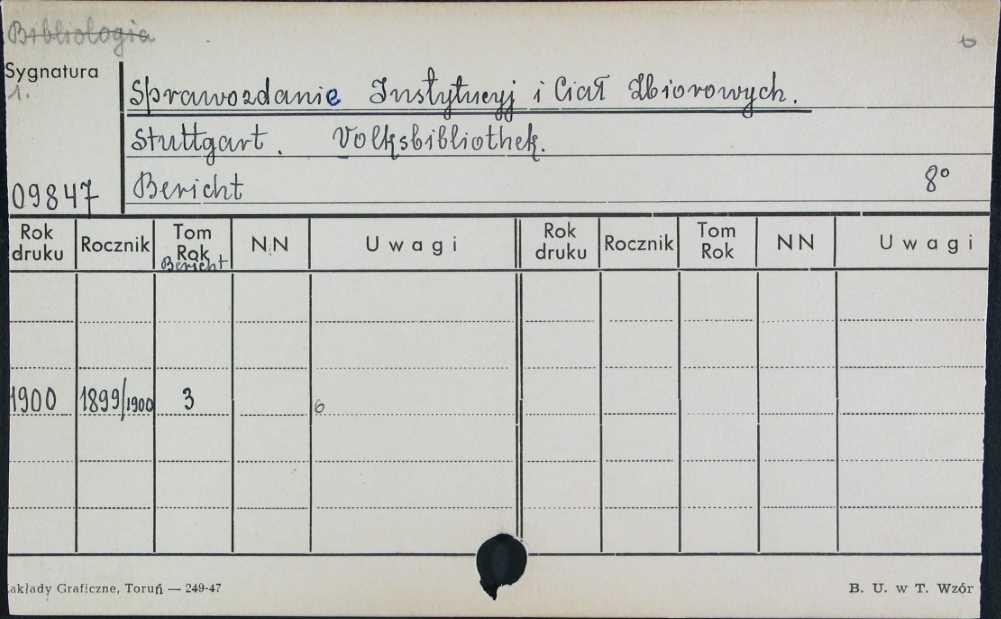 Bibliologia
6
Sygnatura
1.
Sprawozdanie Instytucyj i Ciał Zbiorowych.
Stuttgart. Volksbibliothek.
09847 Bericht 8°
Rok druku Rocznik Tom Rok Bericht NN Uwagi Rok druku Rocznik Tom Rok NN Uwagi
1900 1899/1900 3 6
akłady Graficzne, Toruń — 249-47 B. U. w T. Wzór